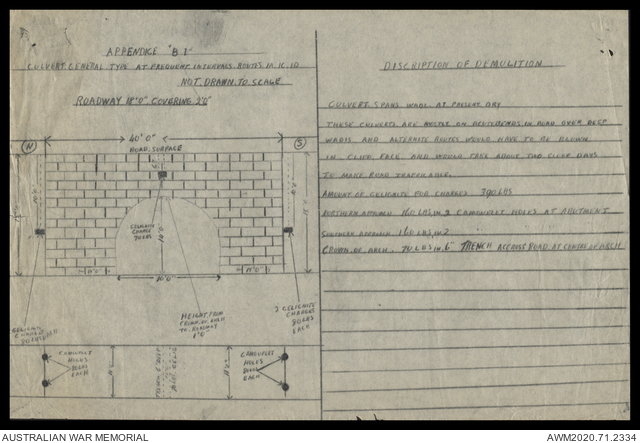 APPENDICE "B 1"
CULVERT GENERAL TYPE AT FREQUENT INTERVALS. ROUTES 1A. 1C. 1D
NOT DRAWN TO SCALE
ROADWAY 18'0" COVERING 2'0"
40'0"
(N)
(S)
ROAD SURFACE
CELIGNITE
CHARGE
70 LBS
10'0"
20'0"
10'0"
HEIGHT FROM
CROWN OF ARCH
TO ROADWAY
1'0"
CHARGE
2 CELIGNITE
CHARGES
80 LBS
EACH
CAMOUFLET
HOLES
80 LBS
EACH
CAMOUFLET
HOLES
80 LBS
EACH
DISCRIPTION OF DEMOLITION
CULVERT SPANS WADI AT PRESENT DRY
THESE CULVERTS ARE MOSTLY ON BENDS IN ROAD OVER DEEP
WADIS AND ALTERNATE ROUTES WOULD HAVE TO BE BLOWN
IN CLIFF FACE AND WOULD TAKE ABOUT TWO CLEAR DAYS
TO MAKE ROAD TRAFICABLE.
AMOUNT OF CELIGNITE FOR CHARGES 390 LBS
NORTHERN APPROACH 160 LBS IN 2 CAMOUFLET HOLES AT ABUTMENT
SOUTHERN APPROACH 160 LBS IN 2
CROWN OF ARCH. 70 LBS IN 6" TRENCH ACCROSS ROAD. AT CENTRE OF ARCH
AUSTRALIAN WAR MEMORIAL
AWM2020.71.2334